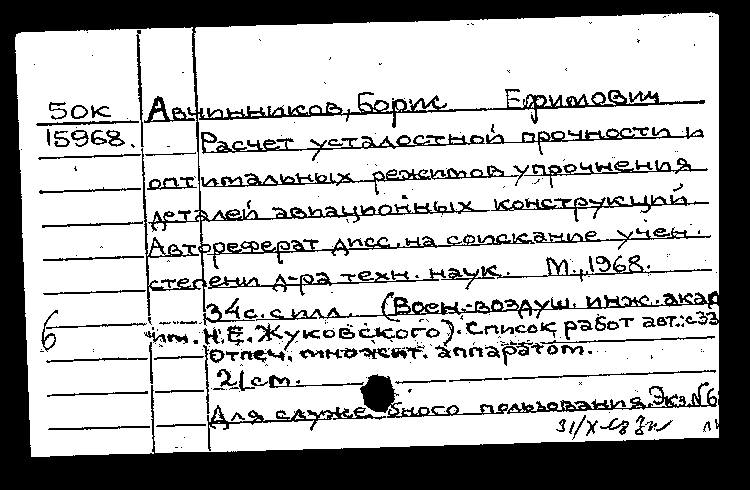 50К Авчинников, Борис Ефимович
15968. Расчет усталостной прочности и
оптимальных режимов упрочнения
деталей авиационных конструкций.
Автореферат дисс. на соискание учен.
степени д-ра техн. наук. М., 1968.
34 с. с илл. (Воен.-воздуш. инж. акад
6 им. Н.Е. Жуковского). Список работ авт.: с 33
Отпеч. множит. аппаратом.
2/см.
Для служебного пользования. Экз. N 6
31/X